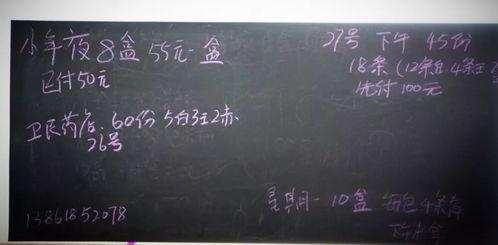 小年夜 8盒 55元一盒
已付50元
卫民药店 60份 5白3玉2赤
26号
13861852078
27号 下午 45份
18条 (12条 4条玉
先付100元
星期一 10盒 每包4条